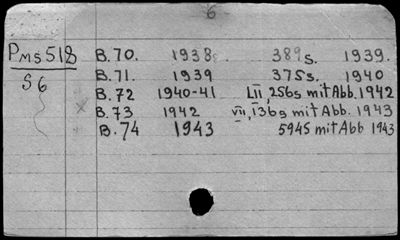 6
Pms 518 B.70. 1938 389s. 1939.
S6 B.71. 1939 375s. 1940
B.72 1940-41 LII, 256s mit Abb. 1942
B.73 1942 VII, 136s mit Abb. 1943
B.74 1943 594S mit Abb 1943